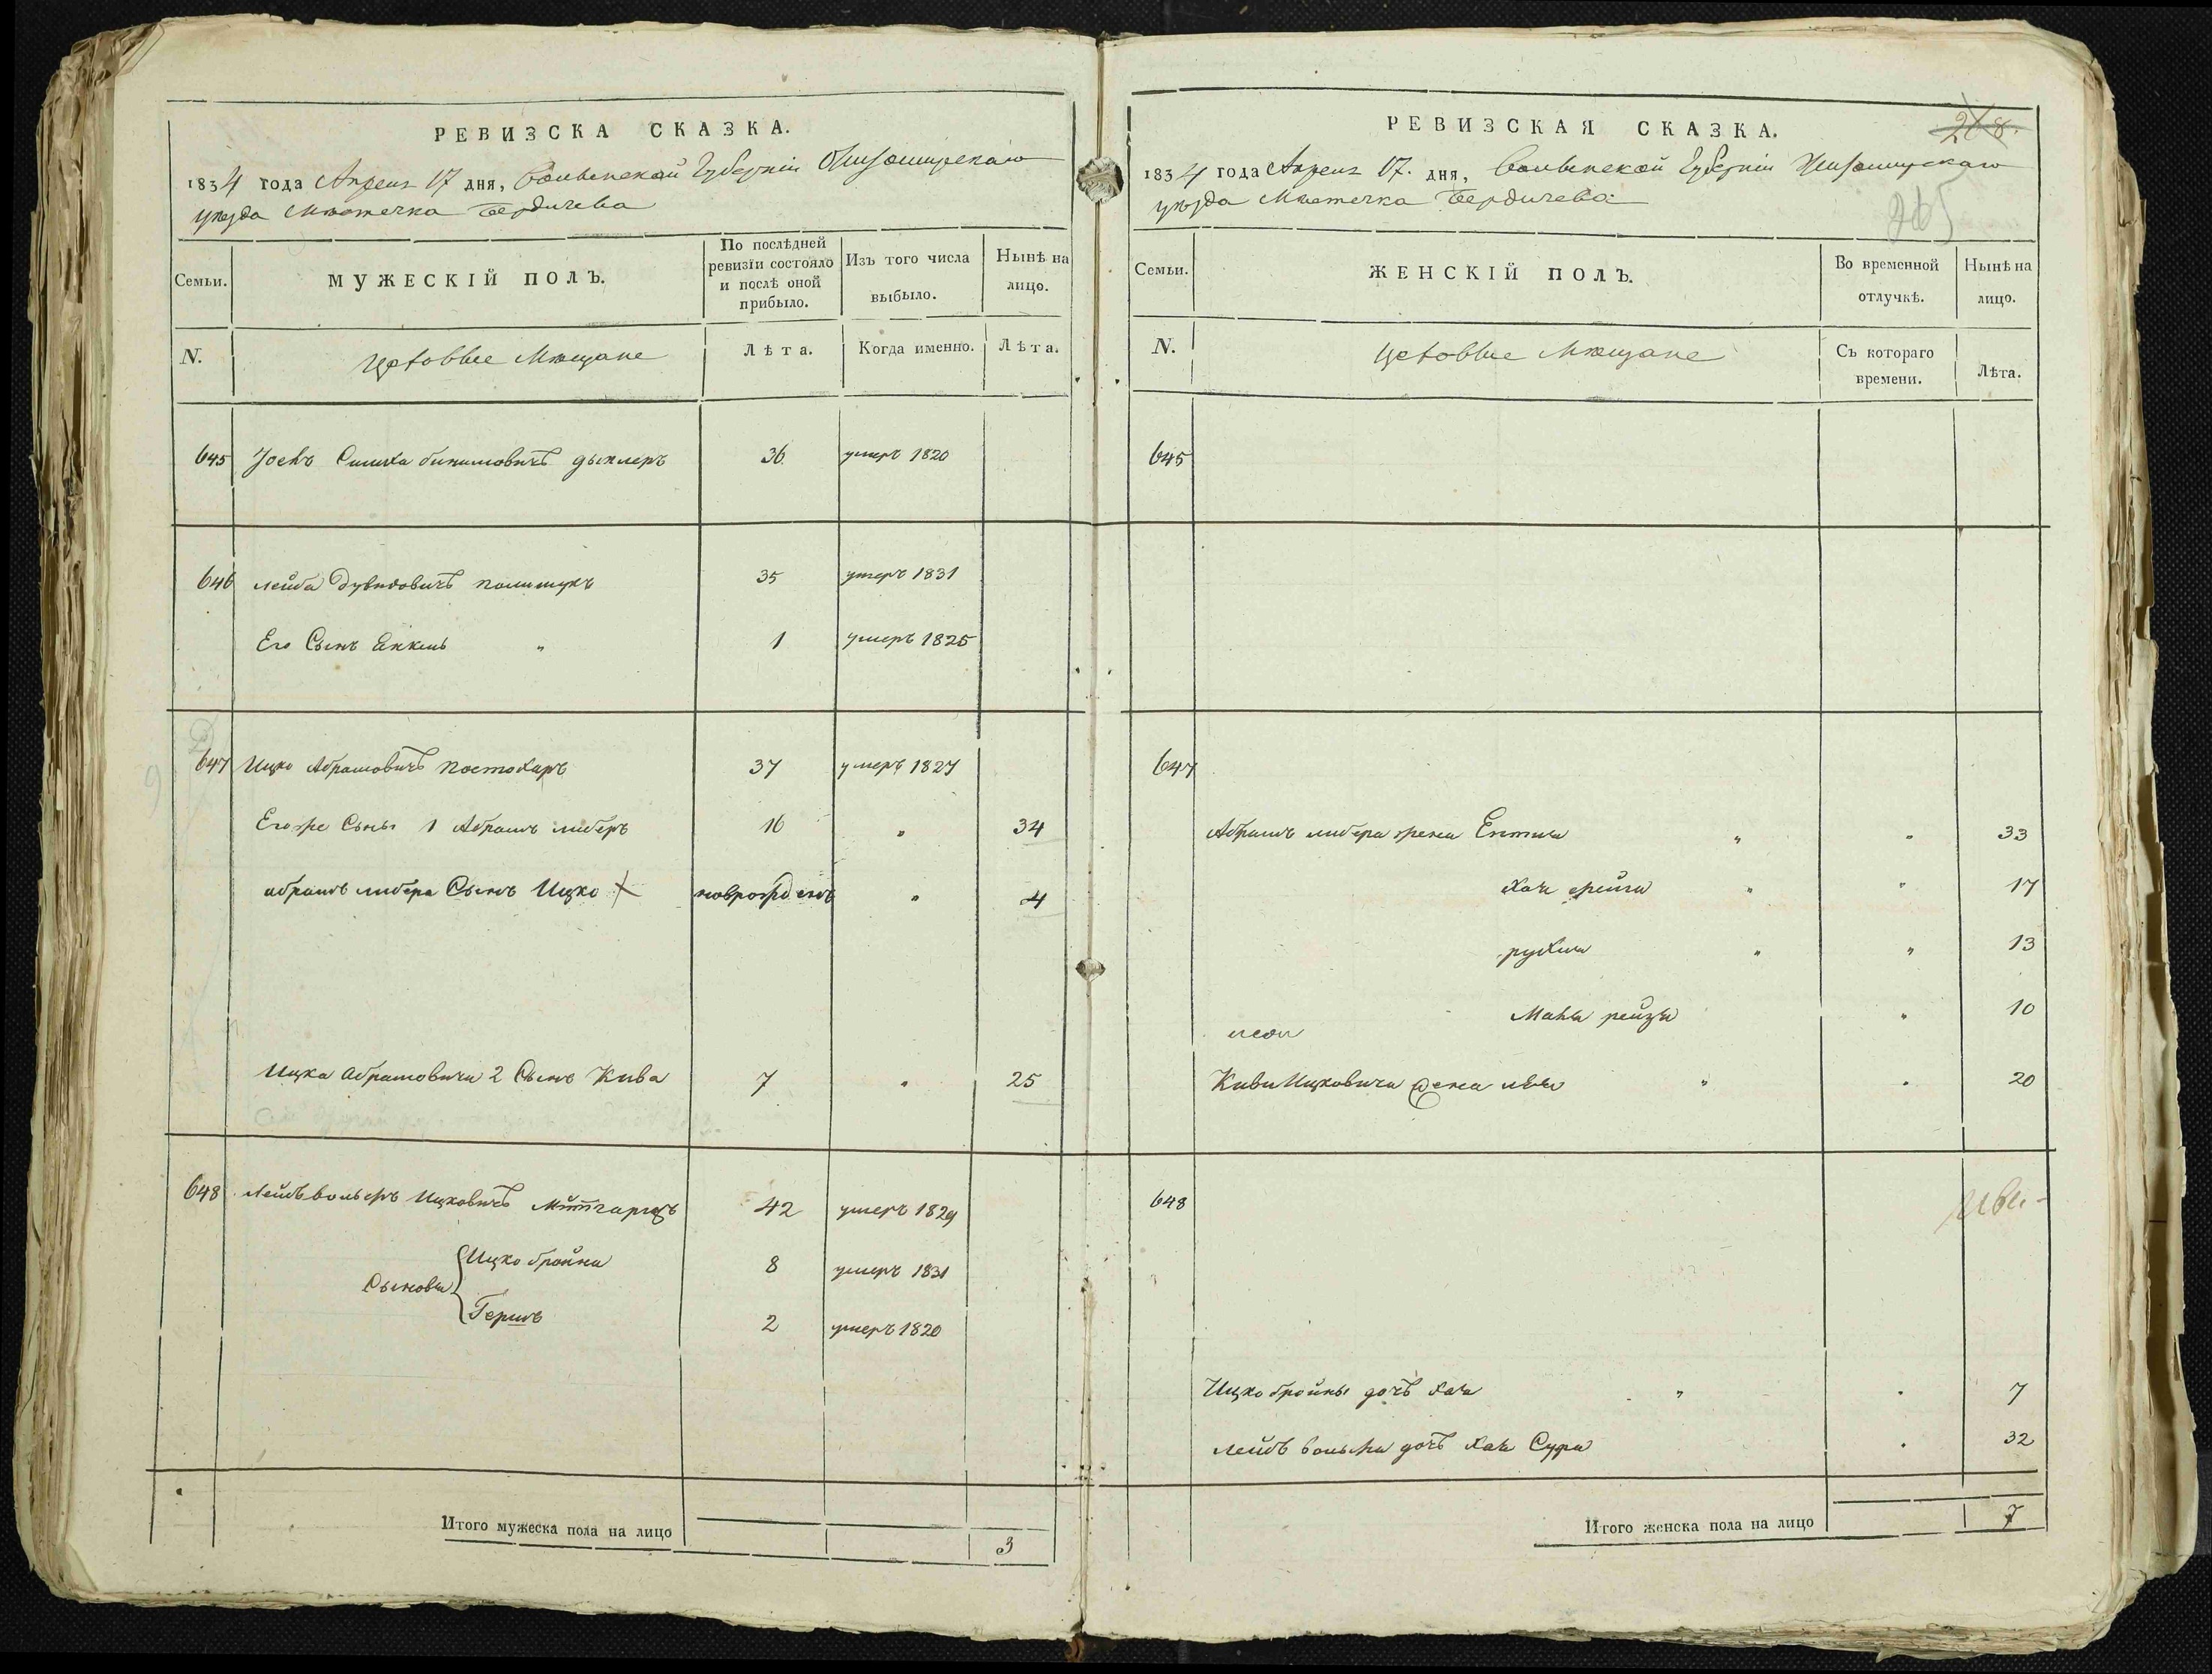 РЕВИЗСКА СКАЗКА.
1834 года Апреля 17 дня, Волынской Губерніи Житомирскаго
уезда Местечка Бердичева
Семьи.
МУЖЕСКІЙ ПОЛЪ.
По послѣдней ревизіи состояло и послѣ оной прибыло.
Изъ того числа выбыло.
Нынѣ на лицо.
N.
Цеховые Мещане
Лѣта.
Когда именно.
Лѣта.
645 Іосъ Симха 36 умеръ 1820
646 Лейба Дувидовичъ полищукъ 35 умеръ 1831
Его Сынъ Янкель " 1 умеръ 1825
647 Ицко Абрамовичъ Постохаръ 37 умеръ 1827
Егоже Сыны 1 Абрамъ либеръ 16 " 34
абрамъ либера Сынъ Ицко новрожденъ " 4
Ицка Абрамовича 2 Сынъ Кива 7 " 25
648 Лейбъ вольфъ Ицковичъ 42 умеръ 1829
Сыновья
Ицко бройна 8 умеръ 1831
Гершъ 2 умеръ 1820
Итого мужеска пола на лицо 3
РЕВИЗСКАЯ СКАЗКА.
1834 года Апреля 17. дня, Волынской Губерніи Житомирскаго
уезда Местечка Бердичева
Семьи.
ЖЕНСКІЙ ПОЛЪ.
Во временной отлучкѣ.
Нынѣ на лицо.
N.
Цеховые Мещане
Съ котораго времени.
Лѣта.
645
647
Абрамъ либера жена Ентля " " 33
Хая фейга " " 17
рухля " " 13
Маня рейзя " 10
Киви Ицковича жена " " 20
648
Ицко бройны дочь Хая " " 7
Лейбъ вольфа дочь Хая Сура " 32
Итого женска пола на лицо 7